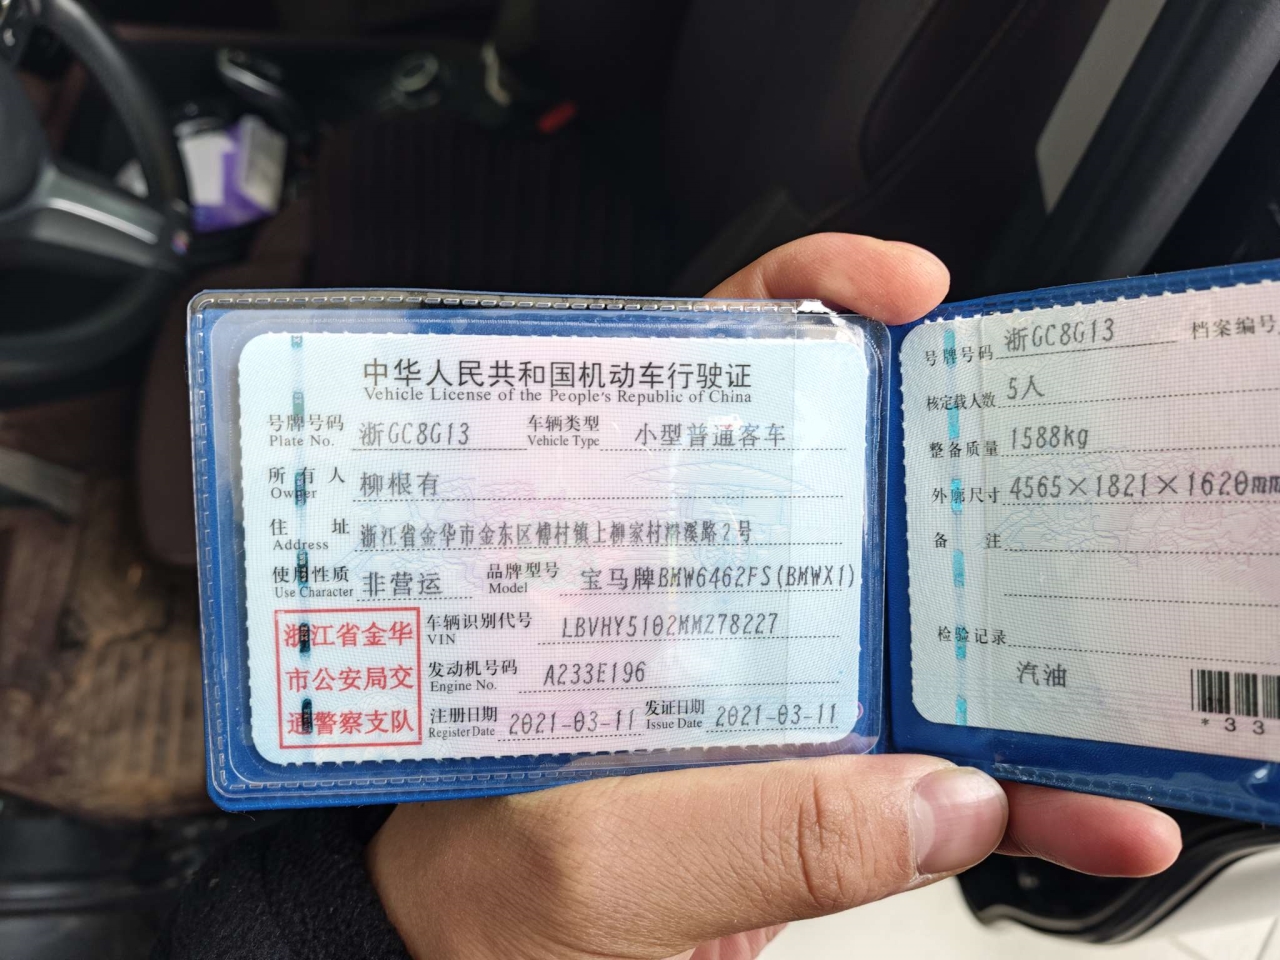 中华人民共和国机动车行驶证
Vehicle License of the People's Republic of China
号牌号码 浙GC8G13 车辆类型 小型普通客车
Plate No. Vehicle Type
所有人 柳根有
Owner
住址 浙江省金华市金东区傅村镇上柳家村潜溪路2号
Address
使用性质 非营运 品牌型号 宝马牌BMW6462FS(BMWX1)
Use Character Model
浙江省金华
市公安局交
通警察支队
车辆识别代号 LBVHY5102MMZ78227
VIN
发动机号码 A233E196
Engine No.
注册日期 2021-03-11 发证日期 2021-03-11
Register Date Issue Date
号牌号码 浙GC8G13 档案编号
核定载人数 5人
整备质量 1588kg
外廓尺寸 4565×1821×1620mm
备注
检验记录
汽油
*33